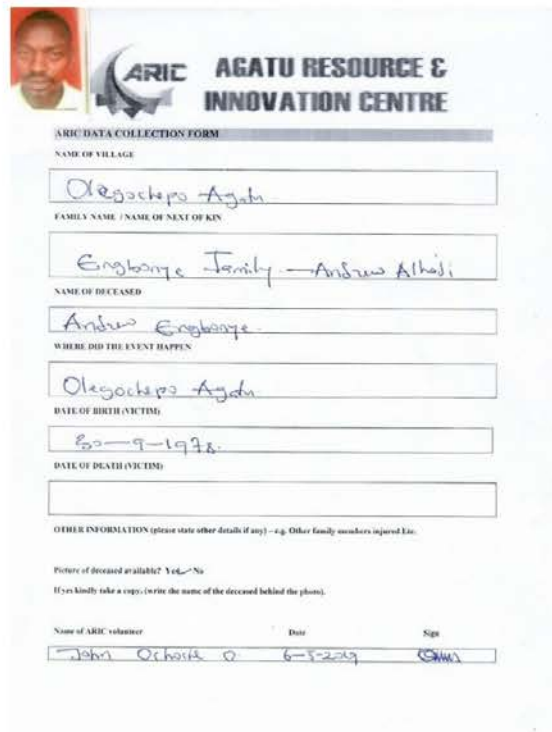 ARIC AGATU RESOURCE &
INNOVATION CENTRE
ARIC DATA COLLECTION FORM
NAME OF VILLAGE
Olegochepo Agatu
FAMILY NAME / NAME OF NEXT OF KIN
Engbonye Family — Andrew Alhaji
NAME OF DECEASED
Andrew Engbonye.
WHERE DID THE EVENT HAPPEN
Olegochepo Agatu
DATE OF BIRTH (VICTIM)
30-9-1978.
DATE OF DEATH (VICTIM)
OTHER INFORMATION (please state other details if any) – e.g. Other family members injured Etc.
Picture of deceased available? Yes No
If yes kindly take a copy. (write the name of the deceased behind the photo).
Name of ARIC volunteer Date Sign
John O 6-5-2019